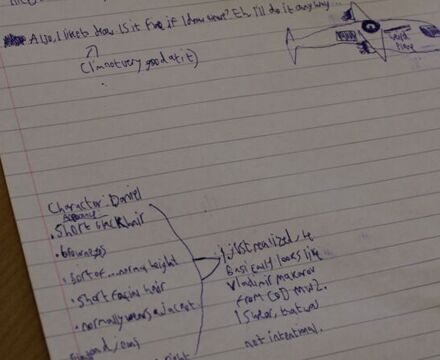 Also, I like to draw. Is it fine if I draw now? Eh, I'll do it anyway...
(I'm not very good at it)
Character: Daniel
Appearance
• Short black hair
• brown eyes
• Sort of... normal height
• Short facial hair
• normally wears a jacket
right
I just realized, he
basically looks like
Vladimir Makarov
from CoD MW2.
I swear, that was
not intentional.